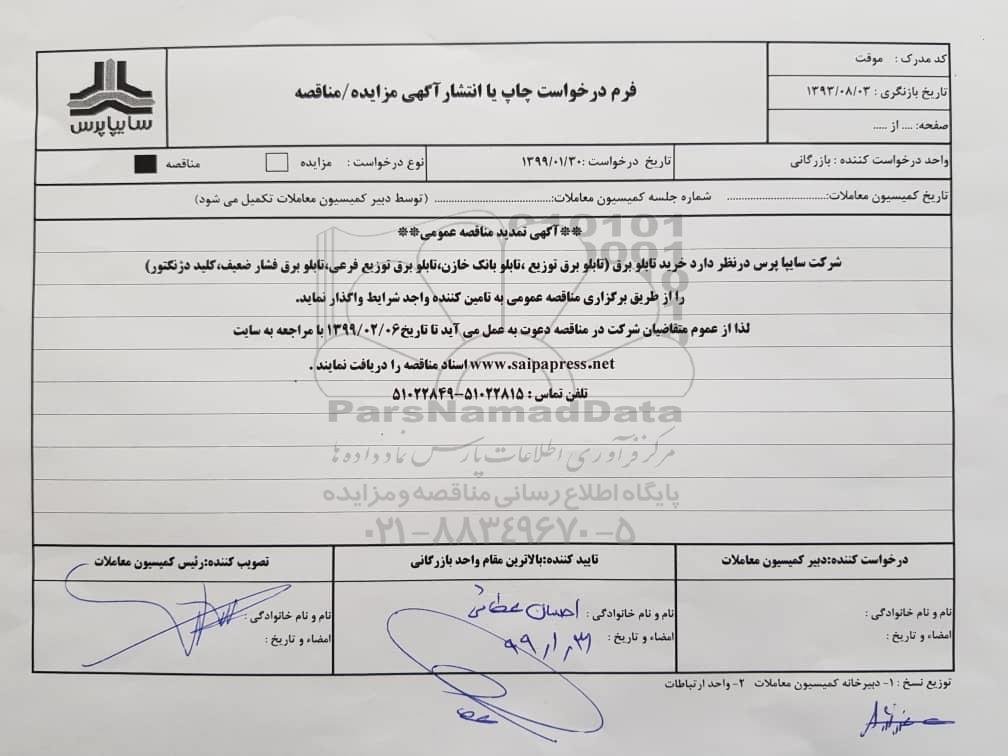 کد مدرک : موقت
تاریخ بازنگری : ۱۳۹۳/۰۸/۰۳
صفحه: .... از .....
فرم درخواست چاپ یا انتشار آگهی مزایده/مناقصه
سایپاپرس
واحد درخواست کننده : بازرگانی
تاریخ درخواست :۱۳۹۹/۰۱/۳۰
نوع درخواست : مزایده مناقصه
تاریخ کمیسیون معاملات:.................................. شماره جلسه کمیسیون معاملات:....................................... (توسط دبیر کمیسیون معاملات تکمیل می شود)
**آگهی تمدید مناقصه عمومی**
شرکت سایپا پرس درنظر دارد خرید تابلو برق (تابلو برق توزیع ،تابلو بانک خازن،تابلو برق توزیع فرعی،تابلو برق فشار ضعیف،کلید دژنکتور)
را از طریق برگزاری مناقصه عمومی به تامین کننده واجد شرایط واگذار نماید.
لذا از عموم متقاضیان شرکت در مناقصه دعوت به عمل می آید تا تاریخ۱۳۹۹/۰۲/۰۶ با مراجعه به سایت
www.saipapress.net اسناد مناقصه را دریافت نمایند .
تلفن تماس : ۵۱۰۲۲۸۱۵–۵۱۰۲۲۸۴۹
ParsNamadData
مرکز فرآوری اطلاعات پارس نماد داده ها
پایگاه اطلاع رسانی مناقصه و مزایده
۰۲۱-۸۸۳۴۹۶۷۰-۵
درخواست کننده:دبیر کمیسیون معاملات
نام و نام خانوادگی :
امضاء و تاریخ :
تایید کننده:بالاترین مقام واحد بازرگانی
نام و نام خانوادگی : احسان عطائی
امضاء و تاریخ : ۹۹/۱/۳۱
تصویب کننده:رئیس کمیسیون معاملات
نام و نام خانوادگی :
امضاء و تاریخ :
توزیع نسخ : ۱- دبیرخانه کمیسیون معاملات ۲- واحد ارتباطات